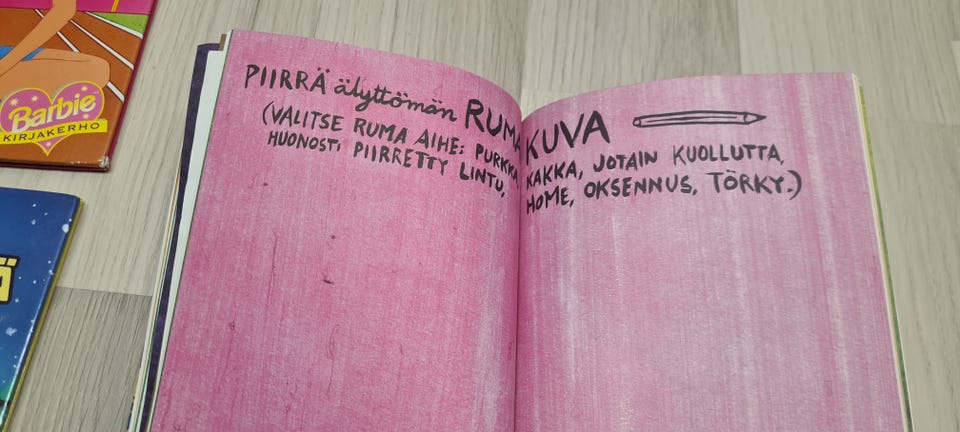 Barbie
KIRJAKERHO
PIIRRÄ älyttömän RUMA KUVA
(VALITSE RUMA AIHE: PURKKA, KAKKA, JOTAIN KUOLLUTTA,
HUONOSTI PIIRRETTY LINTU, HOME, OKSENNUS, TÖRKY.)